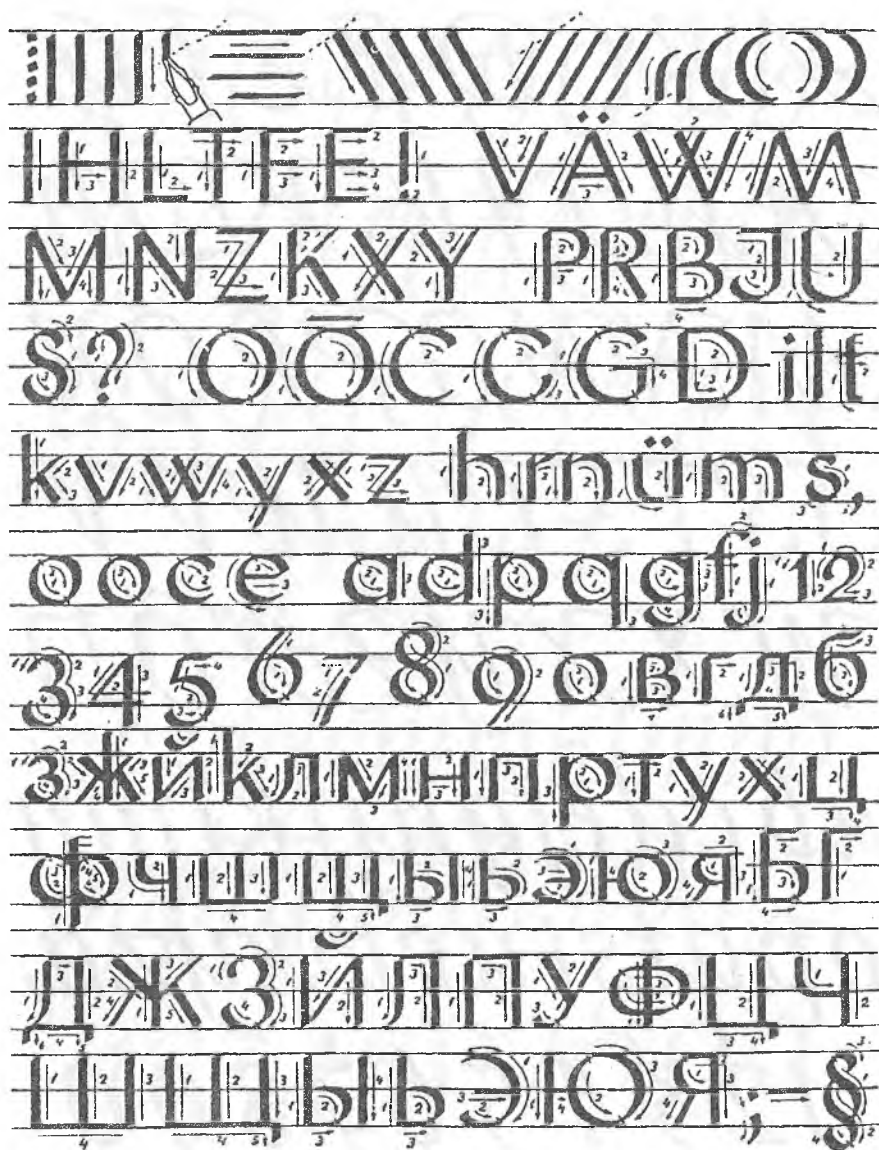 I H L T F E ! V Ä W M
M N Z K X Y P R B J U
S ? O Ō C C G D i l t
k v w y x z h r n ü m s ,
o o c e a d p q g f j 1 2
3 4 5 6 7 8 9 0 в г д б
з ж й k л м н п р т у х ц
ф ч ш щ ы ь э ю я Б Г
Д Ж З Й Л П У Ф Ц Ч
Ш Щ Ы Ь Э Ю Я ; – §